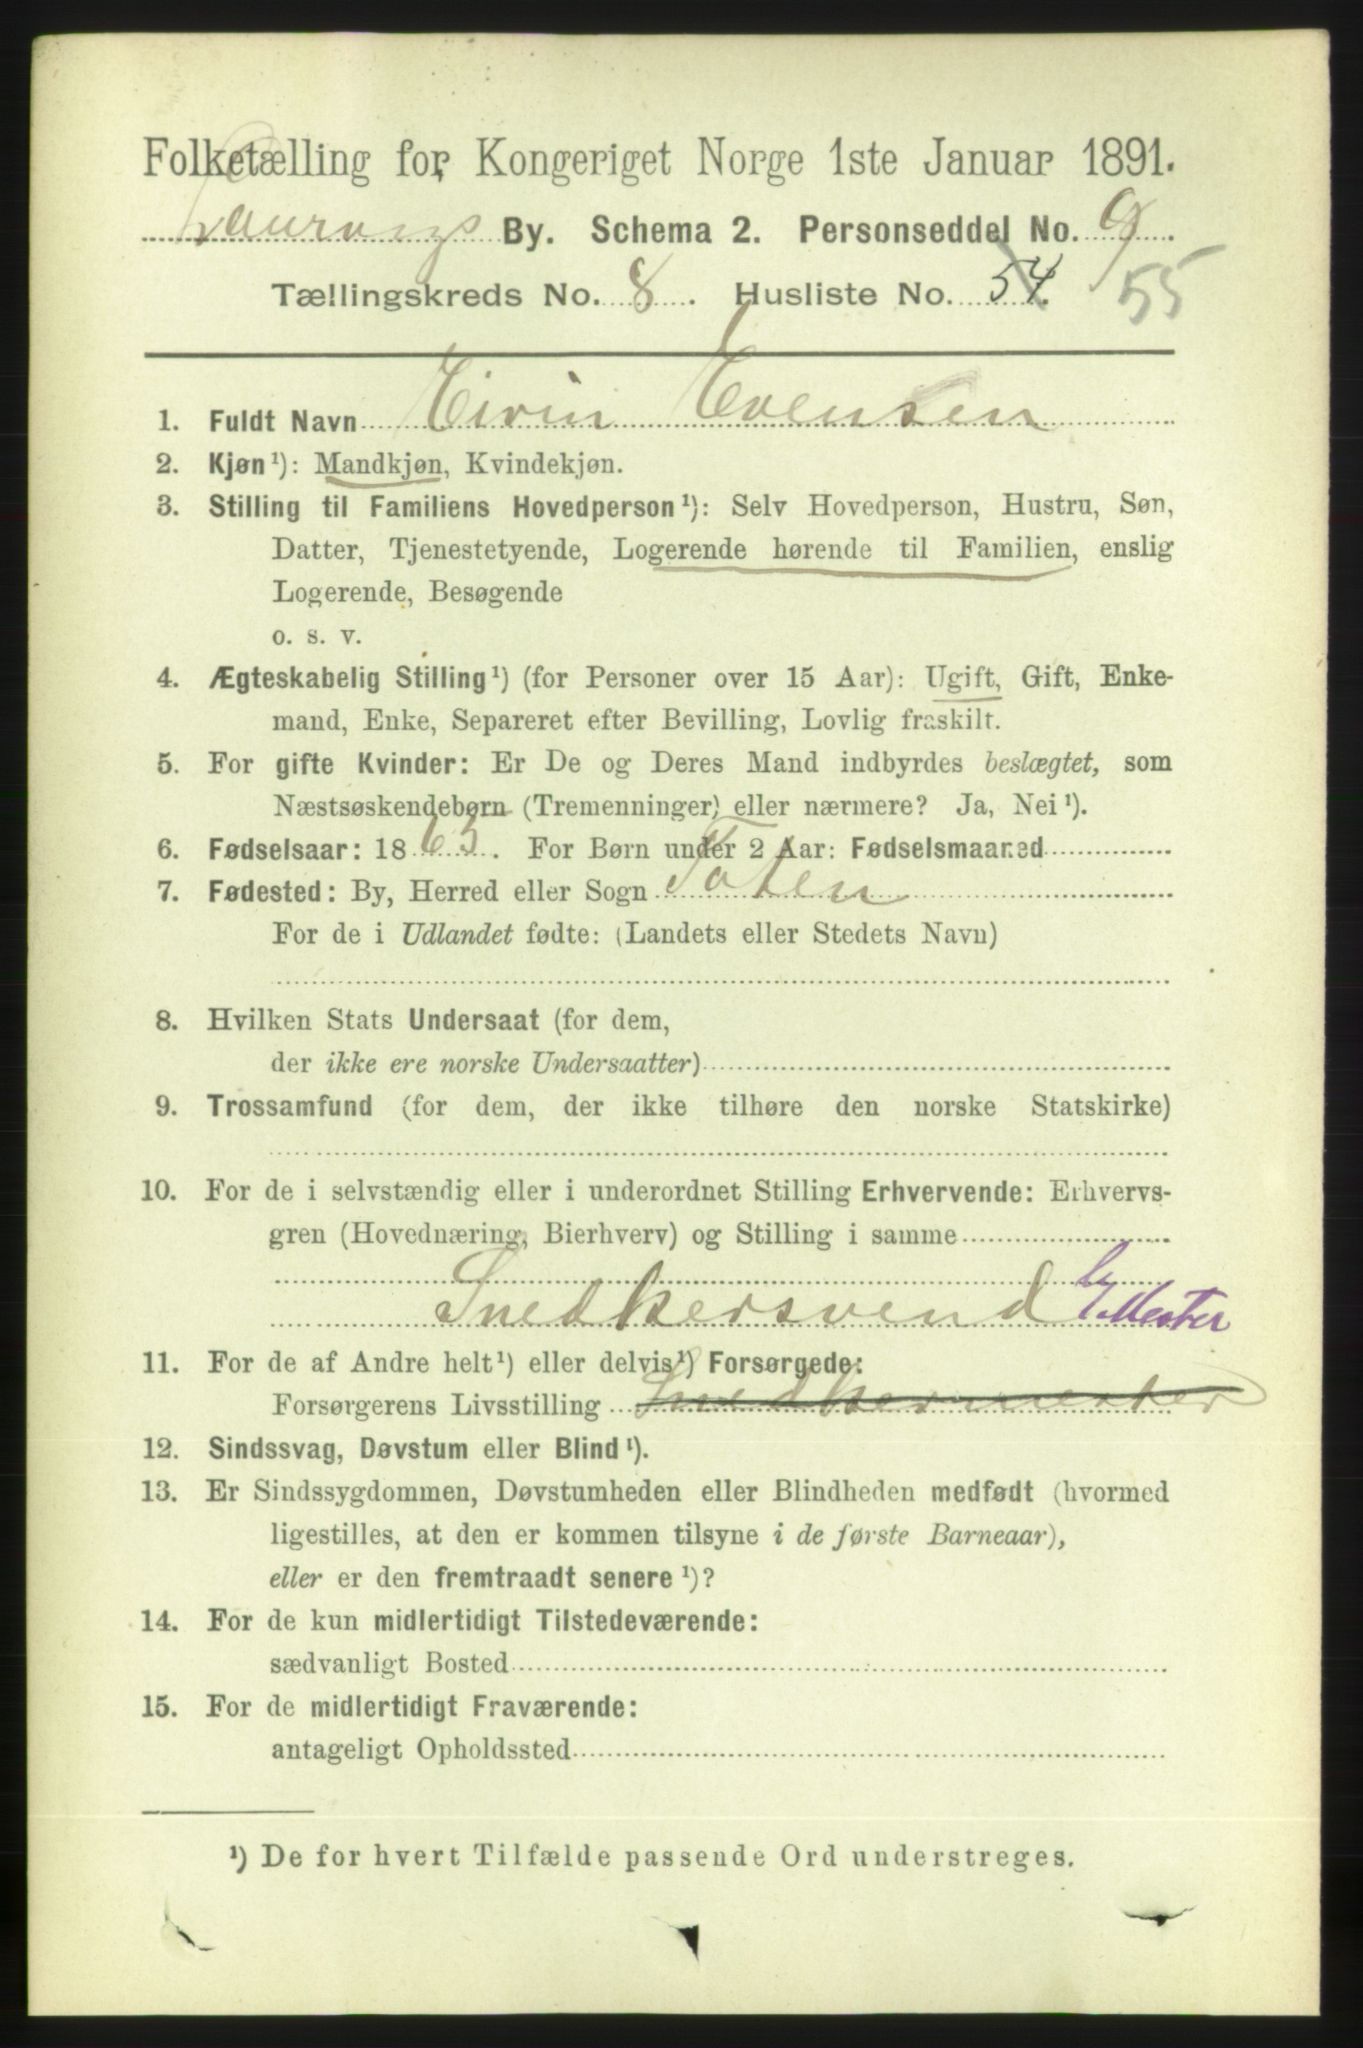 Folketælling for Kongeriget Norge 1ste Januar 1891.
Laurvigs By. Schema 2. Personseddel No. 9.
Tællingskreds No. 8. Husliste No. 54. 55
1. Fuldt Navn Eivin Evensen
2. Kjøn¹): Mandkjøn, Kvindekjøn.
3. Stilling til Familiens Hovedperson¹): Selv Hovedperson, Hustru, Søn,
Datter, Tjenestetyende, Logerende hørende til Familien, enslig
Logerende, Besøgende
o. s. v.
4. Ægteskabelig Stilling¹) (for Personer over 15 Aar): Ugift, Gift, Enke-
mand, Enke, Separeret efter Bevilling, Lovlig fraskilt.
5. For gifte Kvinder: Er De og Deres Mand indbyrdes beslægtet, som
Næstsøskendebørn (Tremenninger) eller nærmere? Ja, Nei¹).
6. Fødselsaar: 1863. For Børn under 2 Aar: Fødselsmaaned
7. Fødested: By, Herred eller Sogn Toten
For de i Udlandet fødte: (Landets eller Stedets Navn)
8. Hvilken Stats Undersaat (for dem,
der ikke ere norske Undersaatter)
9. Trossamfund (for dem, der ikke tilhøre den norske Statskirke)
10. For de i selvstændig eller i underordnet Stilling Erhvervende: Erhvervs-
gren (Hovednæring, Bierhverv) og Stilling i samme
Snedkersvend Mester
11. For de af Andre helt¹) eller delvis¹) Forsørgede:
Forsørgerens Livsstilling Snedkermester
12. Sindssvag, Døvstum eller Blind¹).
13. Er Sindssygdommen, Døvstumheden eller Blindheden medfødt (hvormed
ligestilles, at den er kommen tilsyne i de første Barneaar),
eller er den fremtraadt senere¹)?
14. For de kun midlertidigt Tilstedeværende:
sædvanligt Bosted
15. For de midlertidigt Fraværende:
antageligt Opholdssted
¹) De for hvert Tilfælde passende Ord understreges.